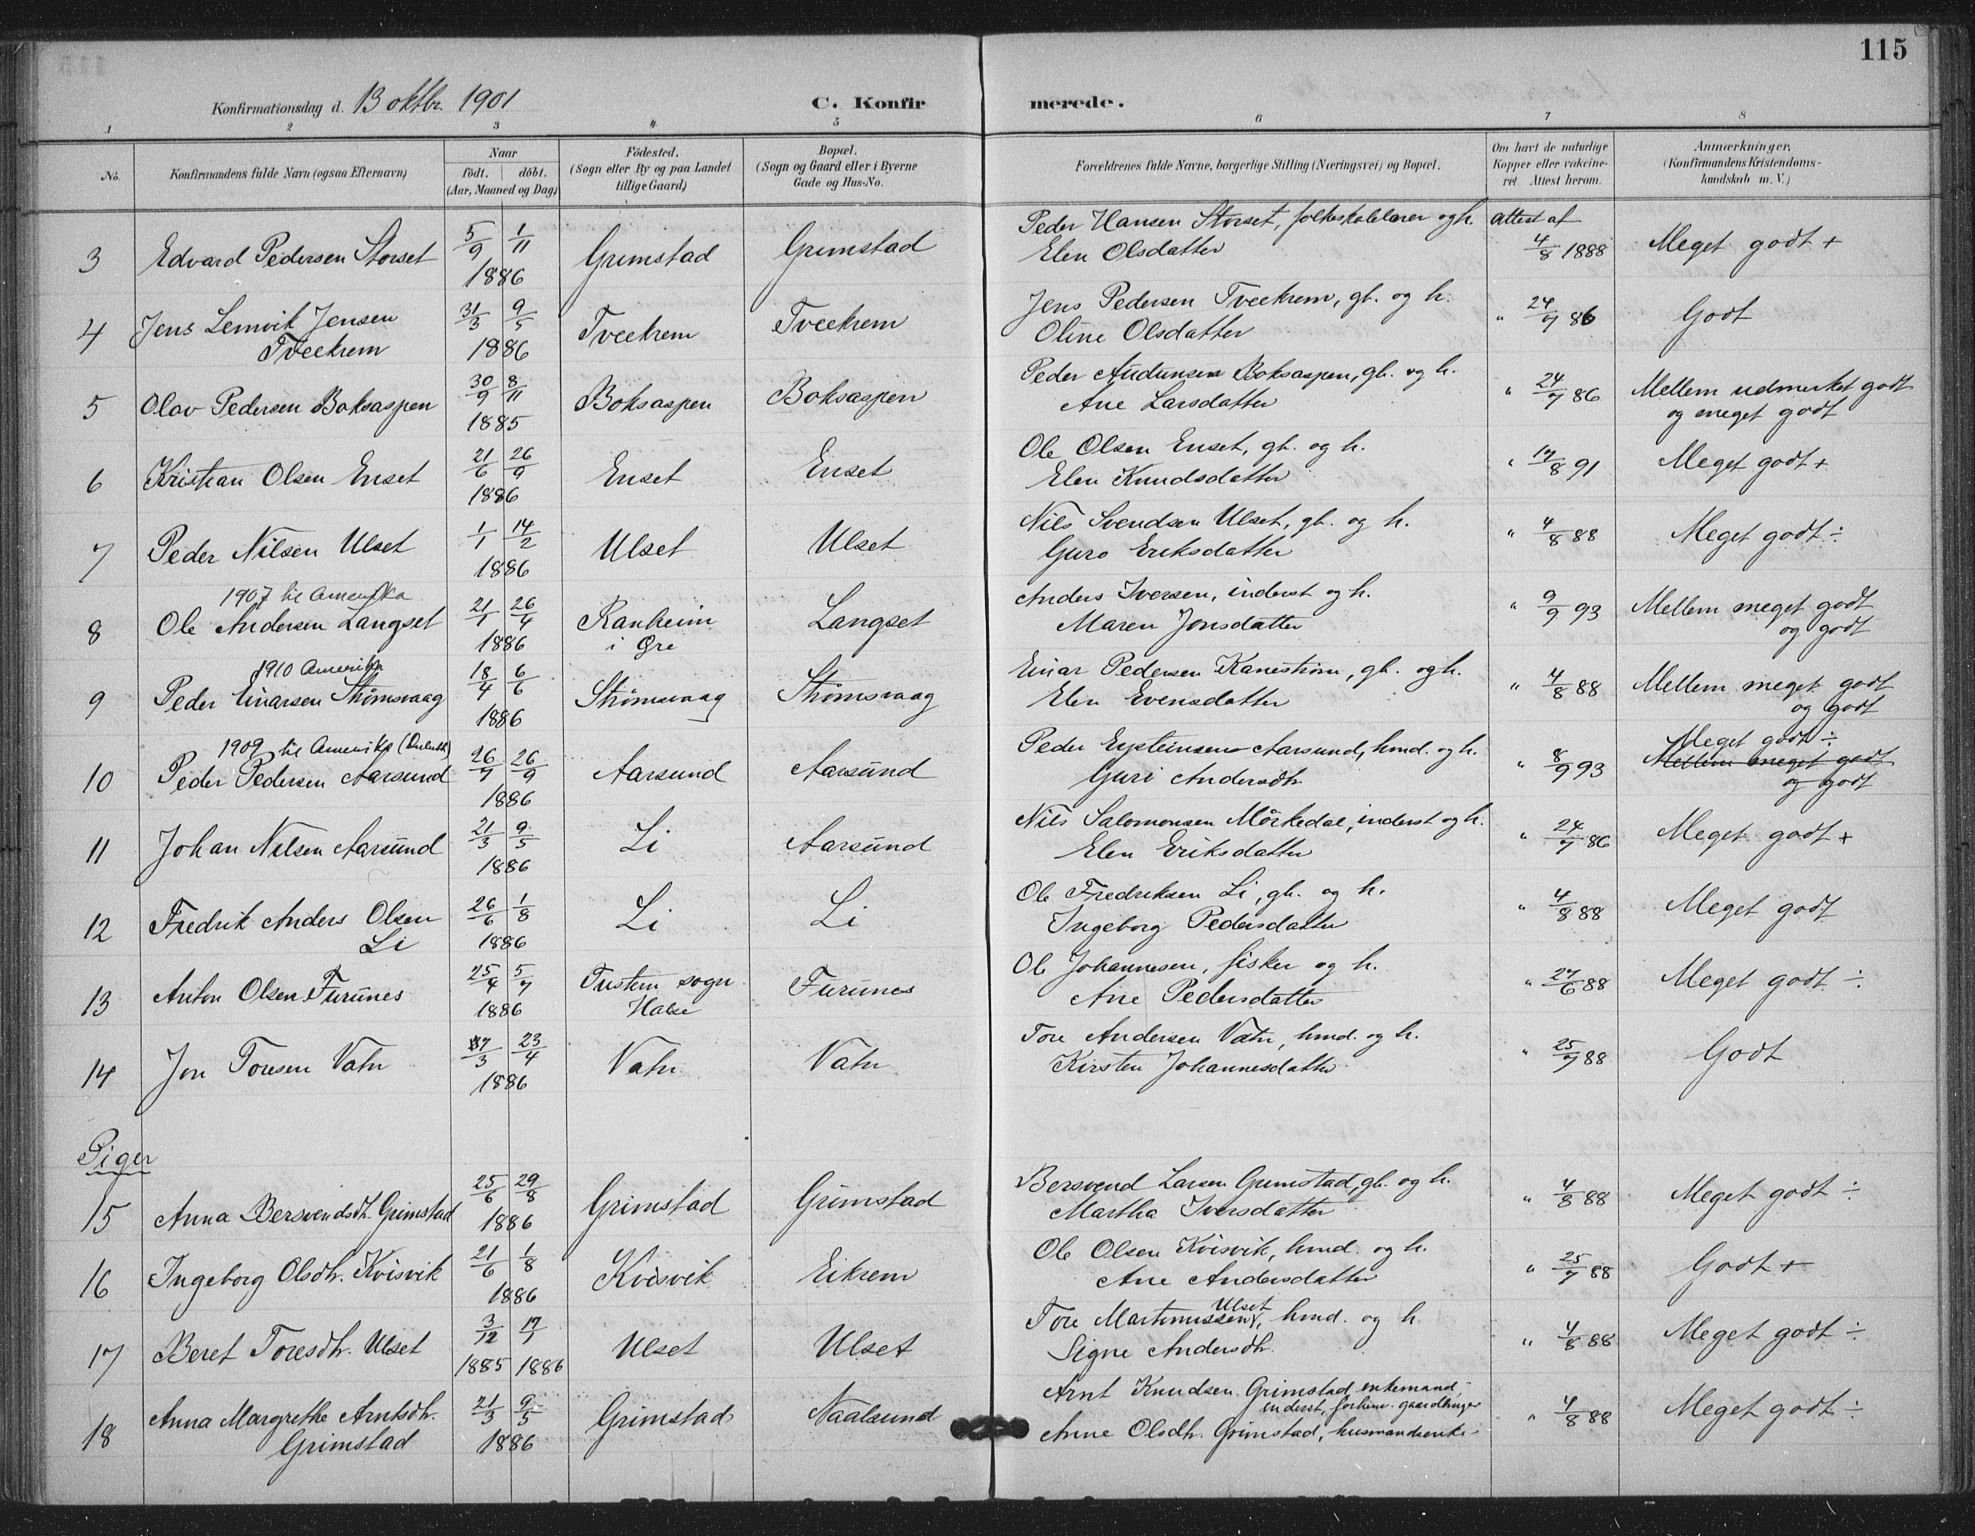 115
Konfirmationsdag d. 13 oktbr. 1901 C. Konfirmerede.
1 2 3 4 5 6 7 8
No. Konfirmandens fulde Navn (ogsaa Efternavn) Naar födt. döbt. (Aar, Maaned og Dag) Födested. (Sogn eller By og paa Landet tillige Gaard) Bopæl. (Sogn og Gaard eller i Byerne Gade og Hus-No. Forældrenes fulde Navne, borgerlige Stilling (Næringsvei) og Bopæl. Om havt de naturlige Kopper eller vakcineret Attest herom. Anmærkninger. (Konfirmandens Kristendomskundskab m. V.)
3 Edvard Pedersen Storset 5/9 1/11 1886 Grimstad Grimstad Peder Hansen Storset, folkeskolelærer og h. Elen Olsdatter attest af 4/8 1888 Meget godt +
4 Jens Lemvik Jensen Tveekrem 31/3 9/5 1886 Tveekrem Tveekrem Jens Pedersen Tveekrem, gb. og h. Oline Olsdatter " 24/7 86 Godt
5 Olav Pedersen Boksaspen 30/9 8/11 1885 Boksaspen Boksaspen Peder Audunsen Boksaspen, gb. og h. Ane Larsdatter " 24/7 86 Mellem udmerket godt og meget godt
6 Kristian Olsen Enset 21/6 26/9 1886 Enset Enset Ole Olsen Enset, gb. og h. Elen Knudsdatter " 17/8 91 Meget godt +
7 Peder Nilsen Ulset 1/1 14/2 1886 Ulset Ulset Nils Svendsen Ulset, gb. og h. Guro Eriksdatter " 4/8 88 Meget godt ÷
1907 til Amerika
8 Ole Andersen Langset 21/1 26/4 1886 Ranheim i Øre Langset Anders Iversen, inderst og h. Maren Jonsdatter " 9/9 93 Mellem meget godt og godt
1910 Amerika
9 Peder Einarsen Strømsvaag 18/4 6/6 1886 Strømsvaag Strømsvaag Einar Pedersen Kanestrøm, gb. og h. Elen Evensdatter " 4/8 88 Mellem meget godt og godt
1909 til Amerika (Duluth)
10 Peder Pedersen Aarsund 26/7 26/9 1886 Aarsund Aarsund Peder Eysteinsen Aarsund, hmd. og h. Guri Andersdtr. " 8/9 93 Meget godt ÷ Mellem meget godt og godt
11 Johan Nilsen Aarsund 21/3 9/5 1886 Li Aarsund Nils Salomonsen Mörkedal, inderst og h. Elen Eriksdatter " 24/7 86 Meget godt +
12 Fredrik Anders Olsen Li 26/6 1/8 1886 Li Li Ole Fredriksen Li, gb. og h. Ingeborg Pedersdatter " 4/8 88 Meget godt
13 Anton Olsen Furunes 25/4 5/7 1886 Tustern sogn Halse Furunes Ole Johannesen, fisker og h. Ane Pedersdatter " 27/6 88 Meget godt ÷
14 Jon Toresen Vatn 7/3 23/4 1886 Vatn Vatn Tore Andersen Vatn, hmd. og h. Kirsten Johannesdatter " 25/7 88 Godt
Piger
15 Anna Bersvendsdtr. Grimstad 25/6 29/8 1886 Grimstad Grimstad Bersvend Larsen Grimstad, gb. og h. Martha Iversdatter " 4/8 88 Meget godt ÷
16 Ingeborg Olsdtr. Kvisvik 21/6 1/8 1886 Kvisvik Eikrem Ole Olsen Kvisvik, hmd. og h. Ane Andersdatter " 25/7 88 Godt +
17 Beret Toresdtr. Ulset 3/12 1885 17/1 1886 Ulset Ulset Tore Martinussen Ulset, hmd. og h. Signe Andersdtr. " 4/8 88 Meget godt ÷
18 Anna Margrethe Arntsdtr. Grimstad 21/3 9/5 1886 Grimstad Naalsund Arnt Knudsen Grimstad, enkemand, inderst, forhen. gaardbruger Anne Olsdtr. Grimstad, husmandsenke. " 4/8 88 Meget godt ÷